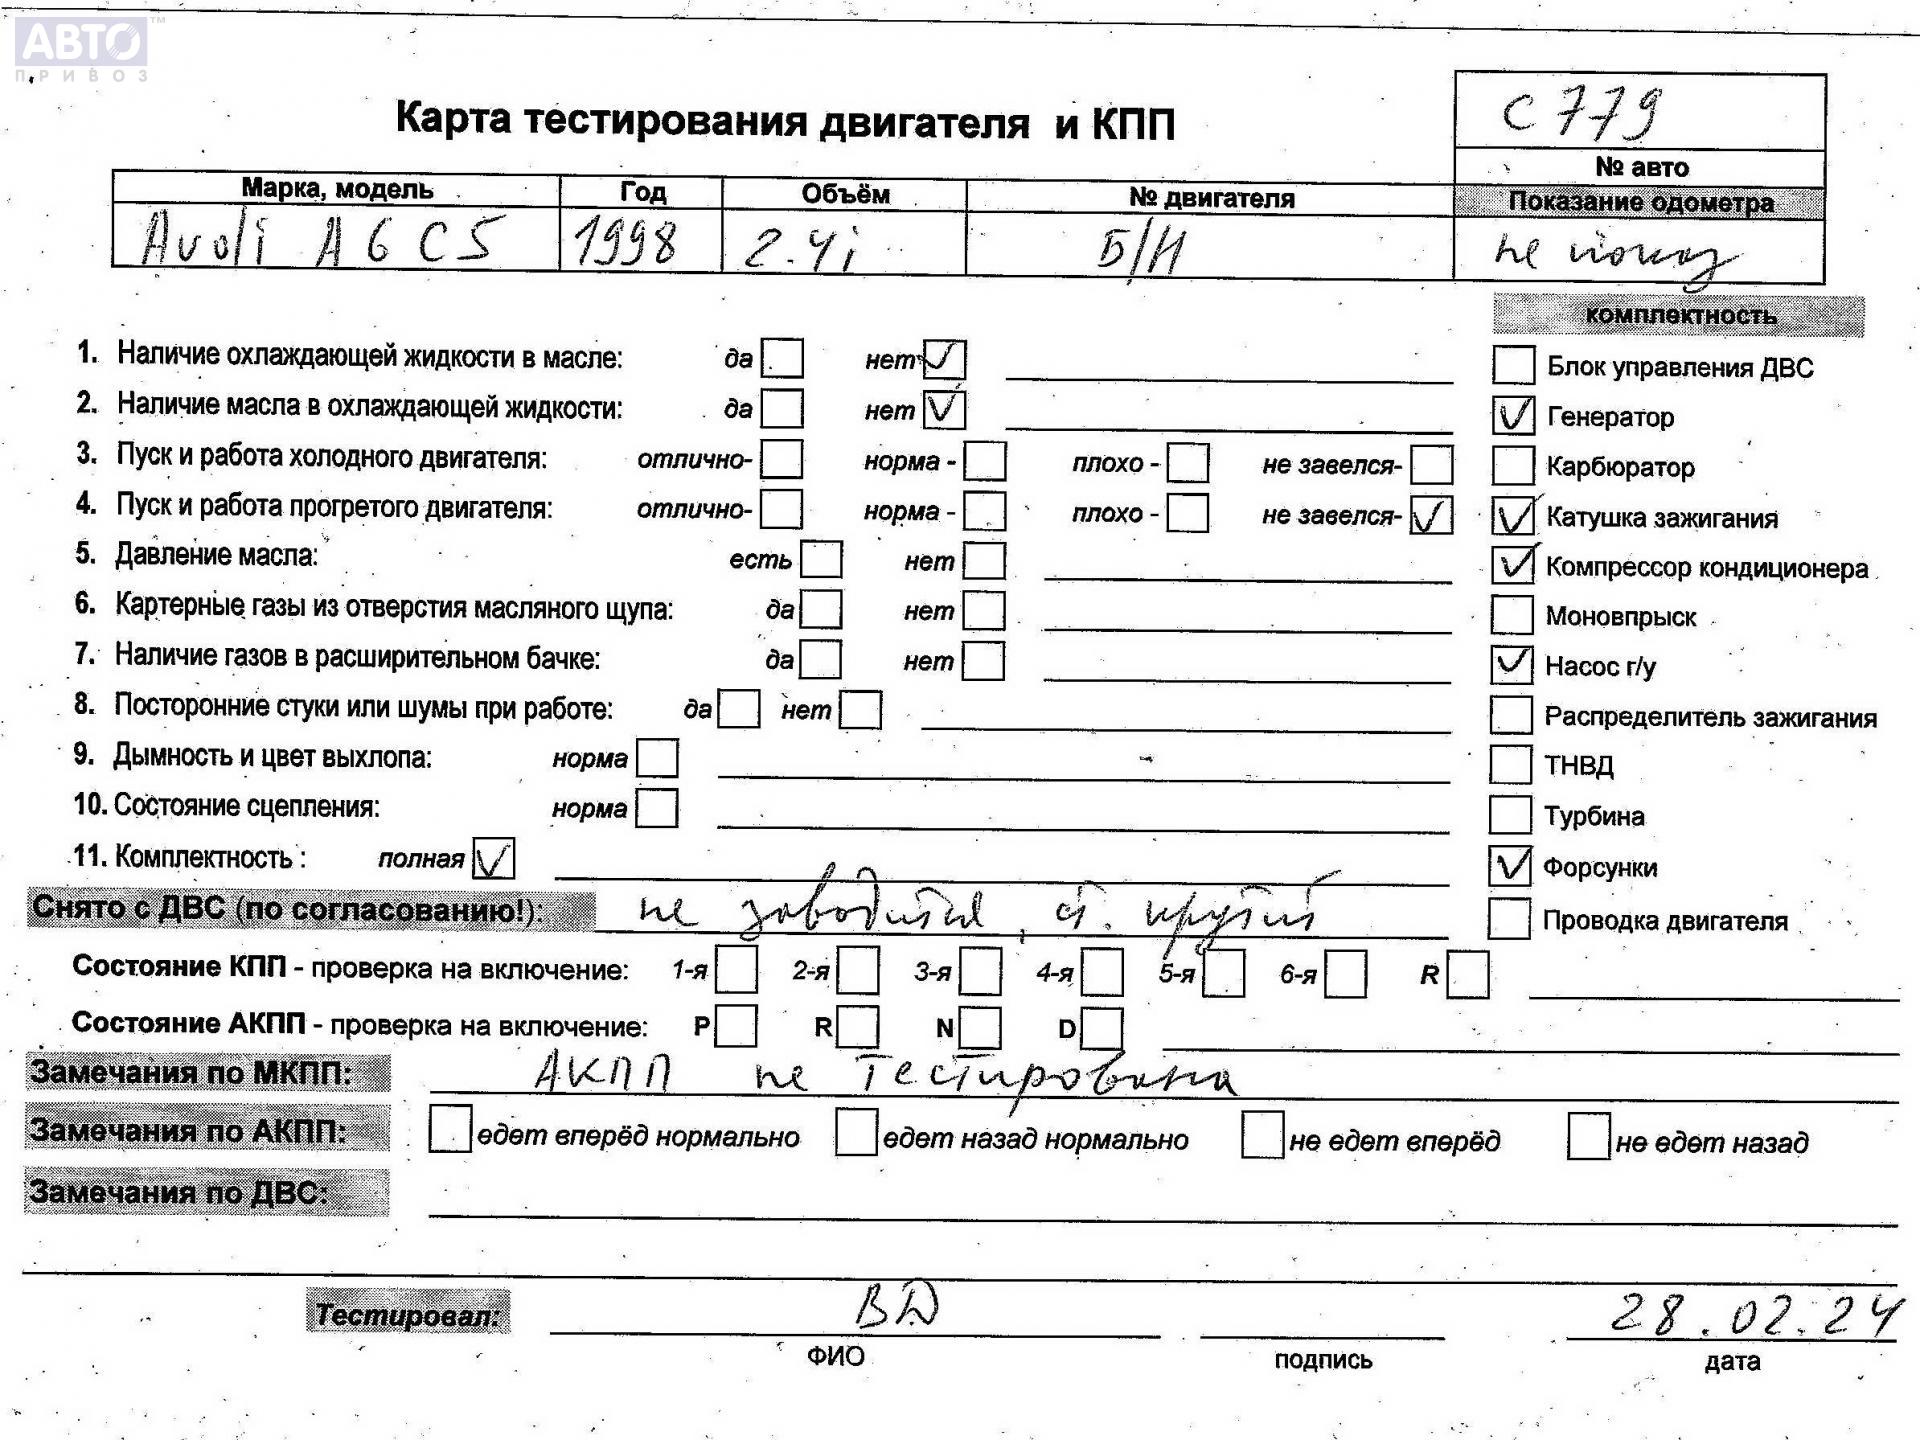 АВТО™
ПРИВОЗ
Карта тестирования двигателя и КПП
С 779
№ авто
Марка, модель Год Объём № двигателя Показание одометра
Audi A6 C5 1998 2.4i Б/Н не показ
комплектность
1. Наличие охлаждающей жидкости в масле: да нет ✓ Блок управления ДВС
2. Наличие масла в охлаждающей жидкости: да нет ✓ ✓ Генератор
3. Пуск и работа холодного двигателя: отлично- норма - плохо - не завелся- Карбюратор
4. Пуск и работа прогретого двигателя: отлично- норма - плохо - не завелся- ✓ ✓ Катушка зажигания
5. Давление масла: есть нет ✓ Компрессор кондиционера
6. Картерные газы из отверстия масляного щупа: да нет Моновпрыск
7. Наличие газов в расширительном бачке: да нет ✓ Насос г/у
8. Посторонние стуки или шумы при работе: да нет Распределитель зажигания
9. Дымность и цвет выхлопа: норма ТНВД
10. Состояние сцепления: норма Турбина
11. Комплектность : полная ✓ ✓ Форсунки
Снято с ДВС (по согласованию!): не заводится, ст. крутит Проводка двигателя
Состояние КПП - проверка на включение: 1-я 2-я 3-я 4-я 5-я 6-я R
Состояние АКПП - проверка на включение: P R N D
Замечания по МКПП: АКПП не тестирована
Замечания по АКПП: едет вперёд нормально едет назад нормально не едет вперёд не едет назад
Замечания по ДВС:
Тестировал: ВД 28.02.24
ФИО подпись дата